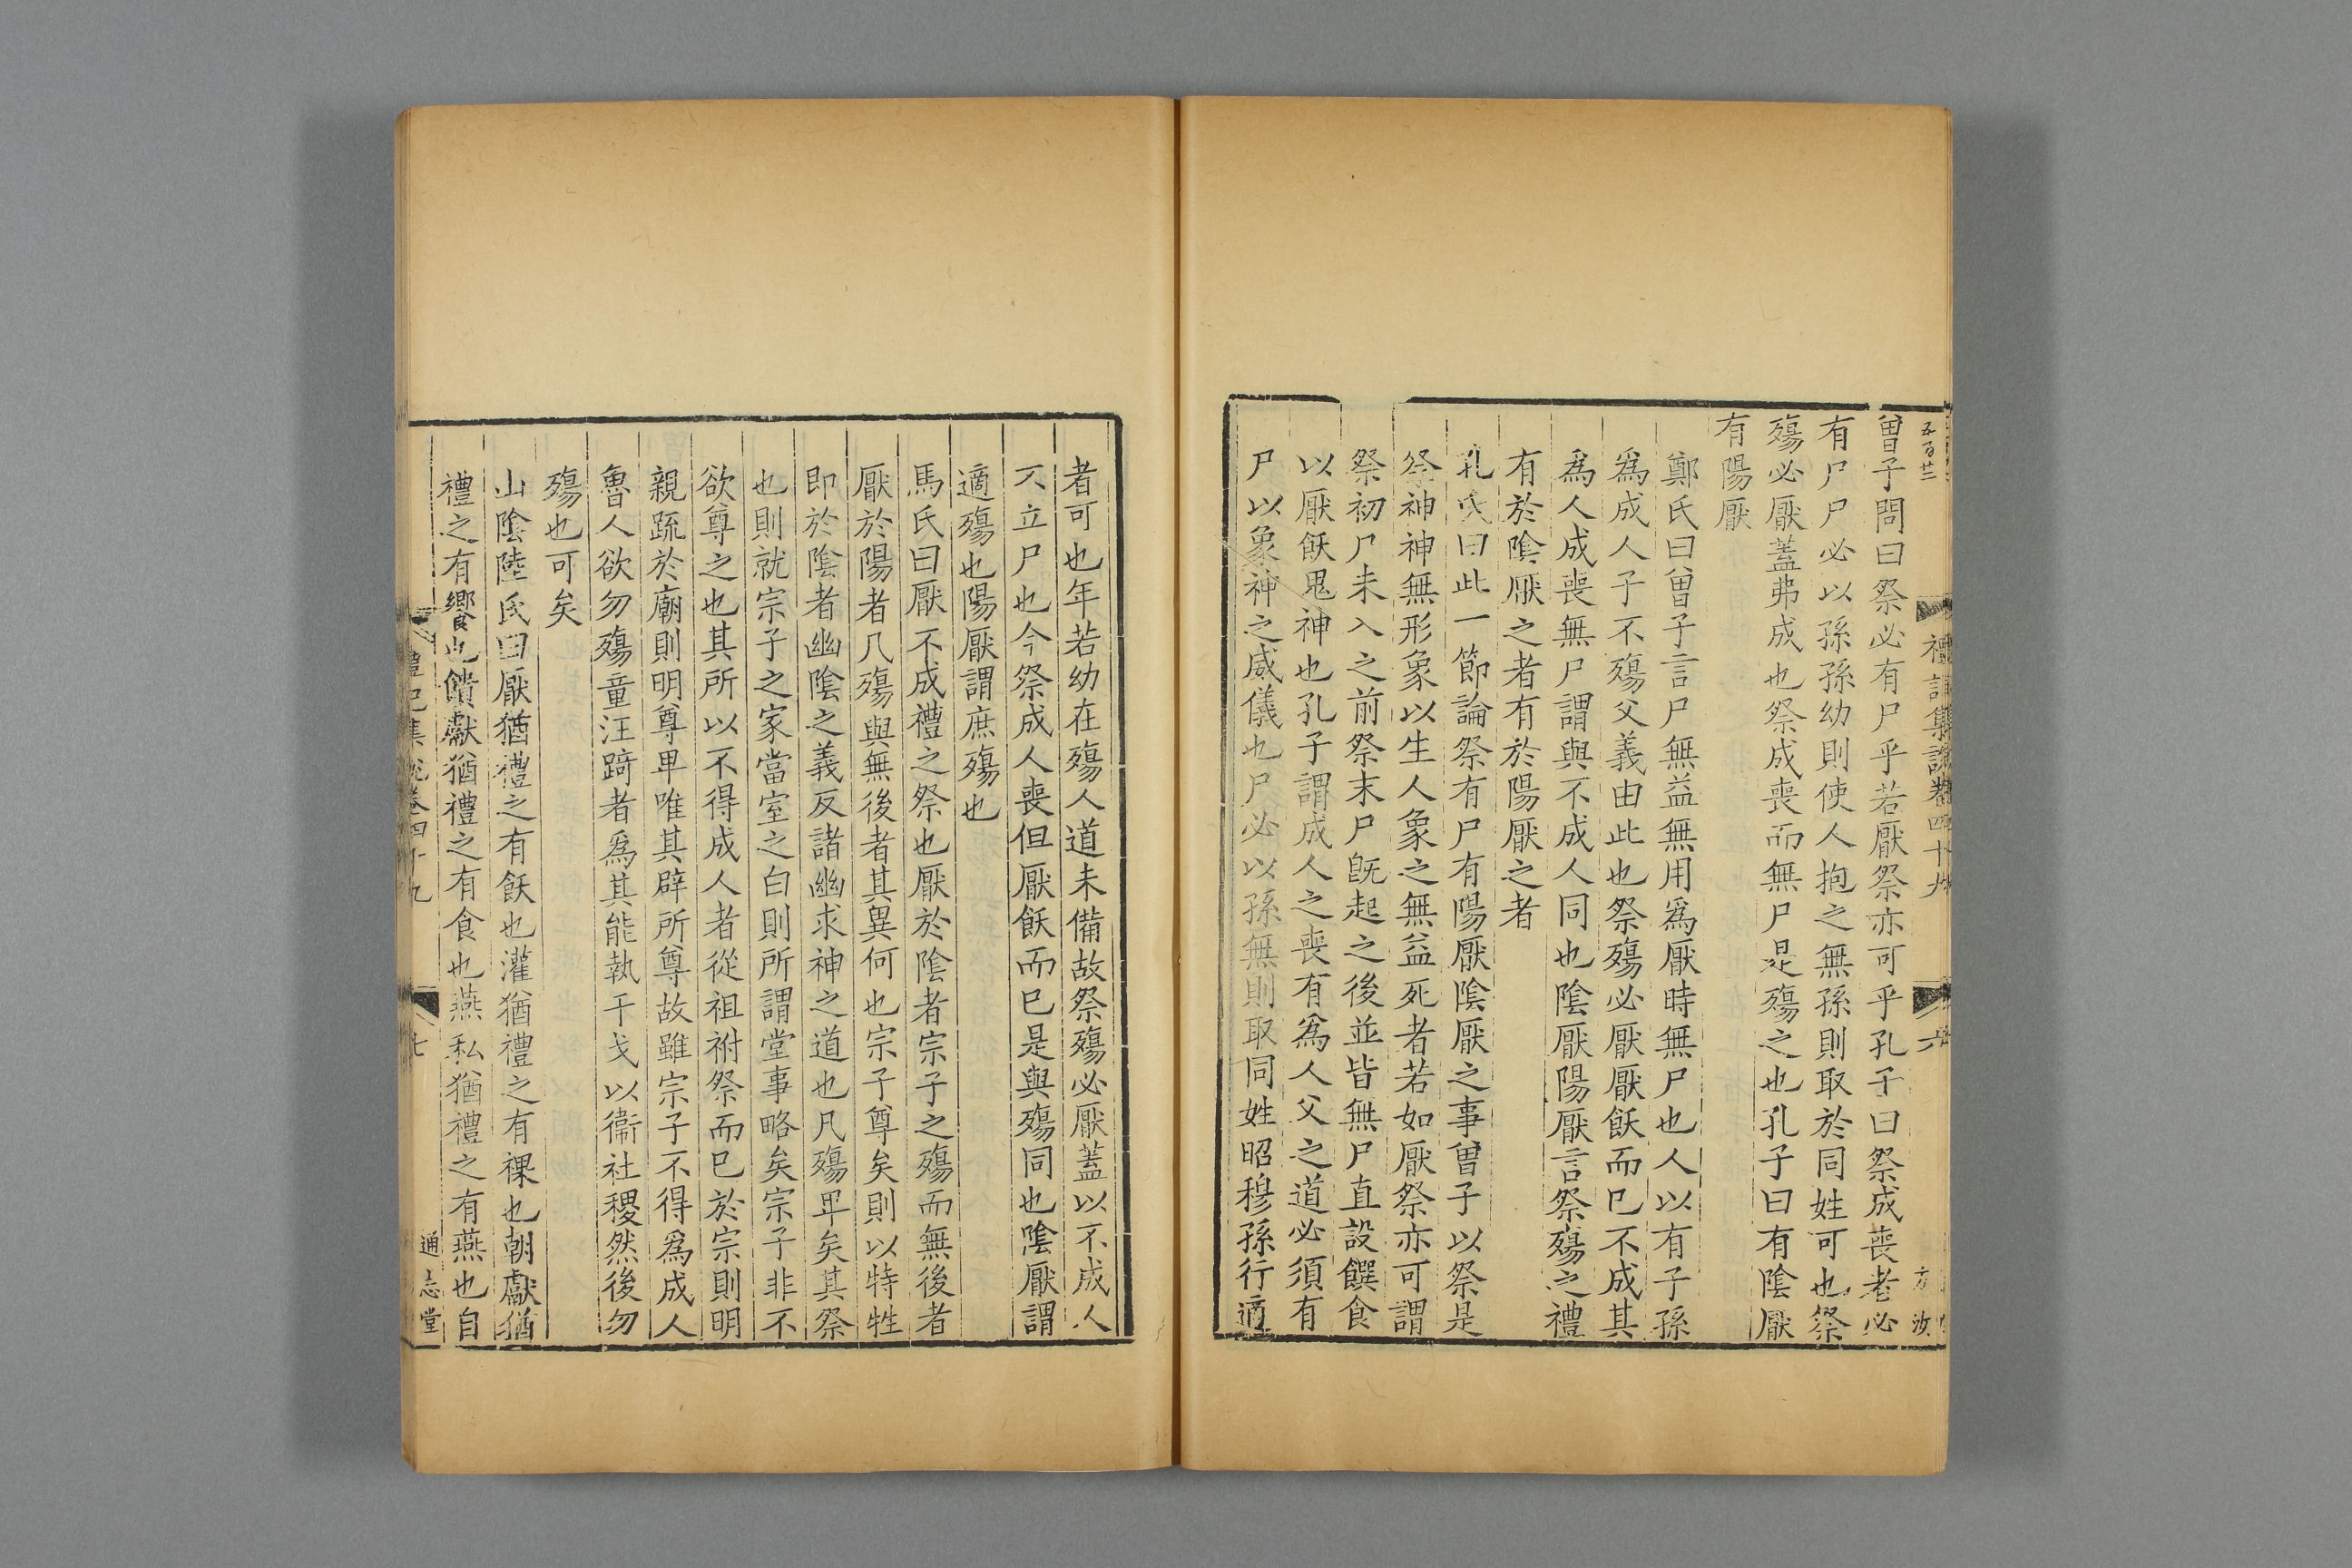 五百廿三
禮記集說卷四十九
六
方汝
曾子問曰祭必有尸乎若厭祭亦可乎孔子曰祭成喪者必
有尸尸必以孫孫幼則使人抱之無孫則取於同姓可也祭
殤必厭蓋弗成也祭成喪而無尸是殤之也孔子曰有陰厭
有陽厭
鄭氏曰曾子言尸無益無用爲厭時無尸也人以有子孫
爲成人子不殤父義由此也祭殤必厭厭飫而已不成其
爲人成喪無尸謂與不成人同也陰厭陽厭言祭殤之禮
有於陰厭之者有於陽厭之者
孔氏曰此一節論祭有尸有陽厭陰厭之事曾子以祭是
祭神神無形象以生人象之無益死者若如厭祭亦可謂
祭初尸未入之前祭末尸旣起之後並皆無尸直設饌食
以厭飫鬼神也孔子謂成人之喪有爲人父之道必須有
尸以象神之威儀也尸必以孫無則取同姓昭穆孫行適
者可也年若幼在殤人道未備故祭殤必厭蓋以不成人
不立尸也今祭成人喪但厭飫而已是與殤同也陰厭謂
適殤也陽厭謂庶殤也
馬氏曰厭不成禮之祭也厭於陰者宗子之殤而無後者
厭於陽者凡殤與無後者其異何也宗子尊矣則以特牲
即於陰者幽陰之義反諸幽求神之道也凡殤卑矣其祭
也則就宗子之家當室之白則所謂堂事略矣宗子非不
欲尊之也其所以不得成人者從祖祔祭而已於宗則明
親疏於廟則明尊卑唯其辟所尊故雖宗子不得爲成人
魯人欲勿殤童汪踦者爲其能執干戈以衞社稷然後勿
殤也可矣
山陰陸氏曰厭猶禮之有飫也灌猶禮之有祼也朝獻猶
禮之有饗也饋獻猶禮之有食也燕私猶禮之有燕也自
禮記集說卷四十九
七
通志堂